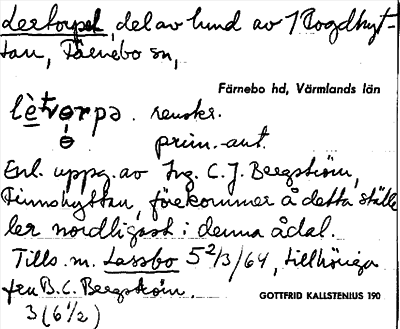 Lertorpet, del av lund av Rogdhyt-
tan, Färnebo sn,
Färnebo hd, Värmlands län
renskr.
prim.-ant.
Enl. uppg. av Ing. C. J. Bergström,
Finnshyttan, förekommer å detta ställe
ler nordligast i denna ådal.
Tills. m. Lassbo 5 2/3/64, tillhöriga
frk B. C. Bergström.
GOTTFRID KALLSTENIUS 190
3 (6 1/2)